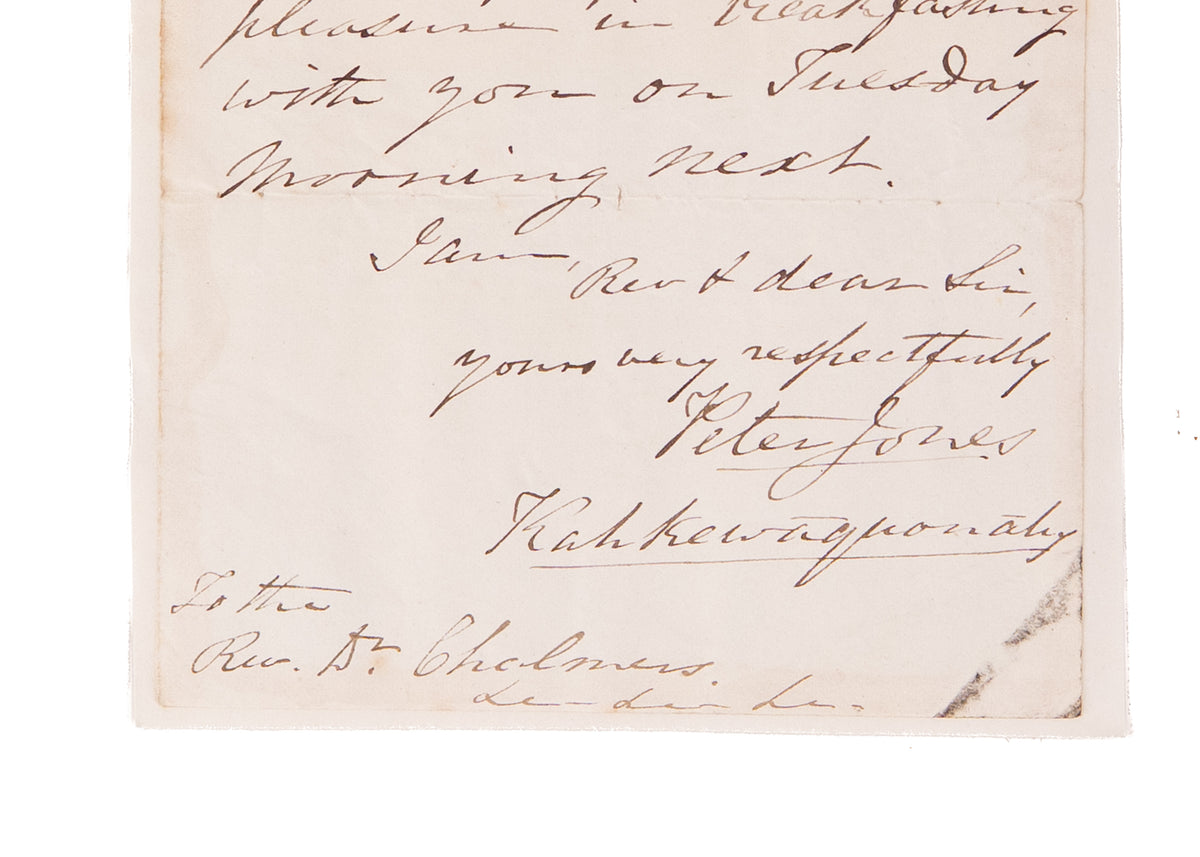 pleasure in breakfasting
with you on Tuesday
Morning next.
I am,
Rev & dear Sir,
yours very respectfully
Peter Jones
Kahkewāquonāby
To the
Rev. Dr. Chalmers.
&c &c &c.